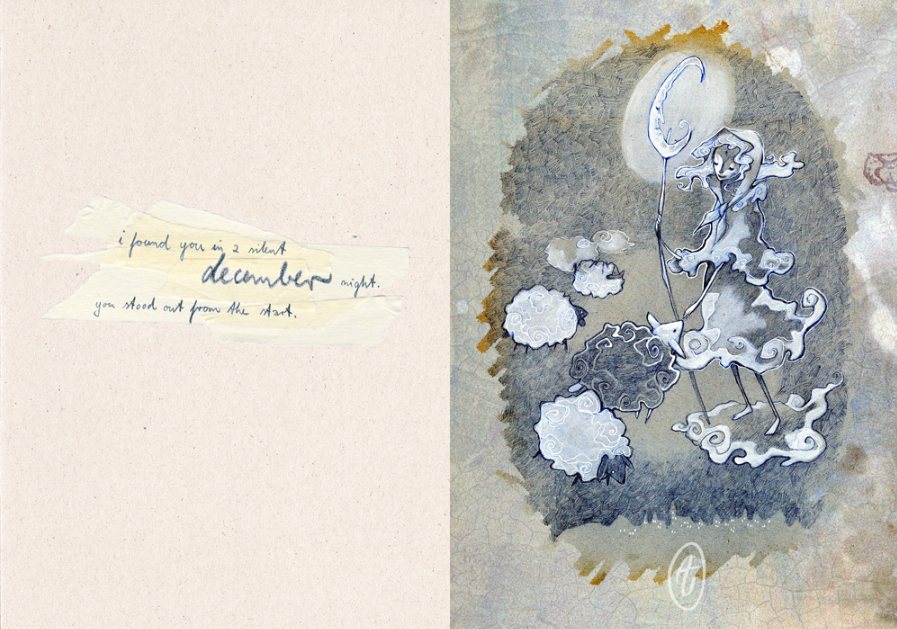 i found you in a silent
december night.
you stood out from the start.